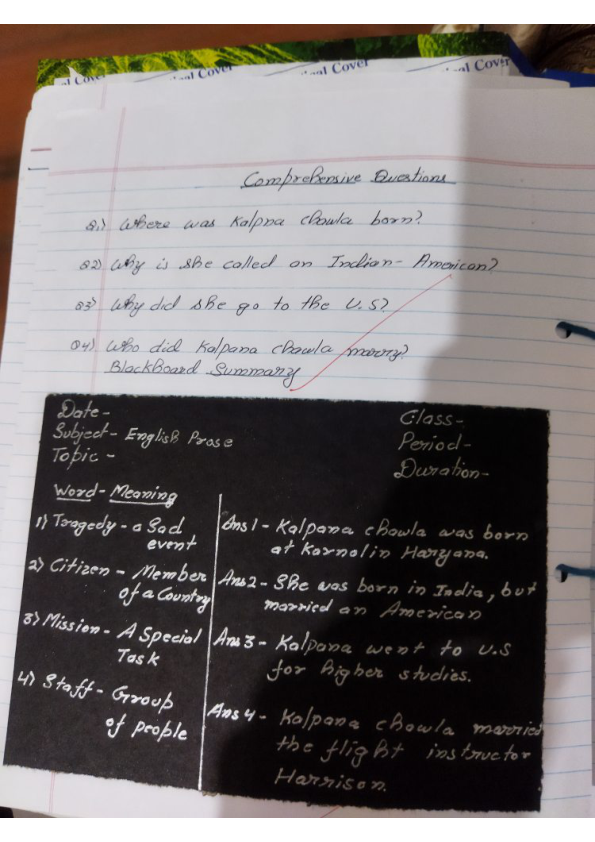 al Cover
ical Cover
nal Cover
al Cover
Comprehensive Questions
Q.1) Where was Kalpna chawla born?
Q2) Why is she called an Indian-American?
Q3) Why did she go to the U.S?
Q4) Who did Kalpana chawla marry?
BlackBoard Summary
Date-
Subject- English Prose
Topic-
Class-
Period-
Duration-
Word-Meaning
1) Tragedy- a Sad
event
2) Citizen - Member
of a Country
3) Mission- A Special
Task
4) Staff- Group
of people
Ans1- Kalpana chawla was born
at Karnal in Haryana.
Ans2- She was born in India, but
married an American
Ans3- Kalpana went to U.S
for higher studies.
Ans4- Kalpana chawla married
the flight instructor
Harrison.